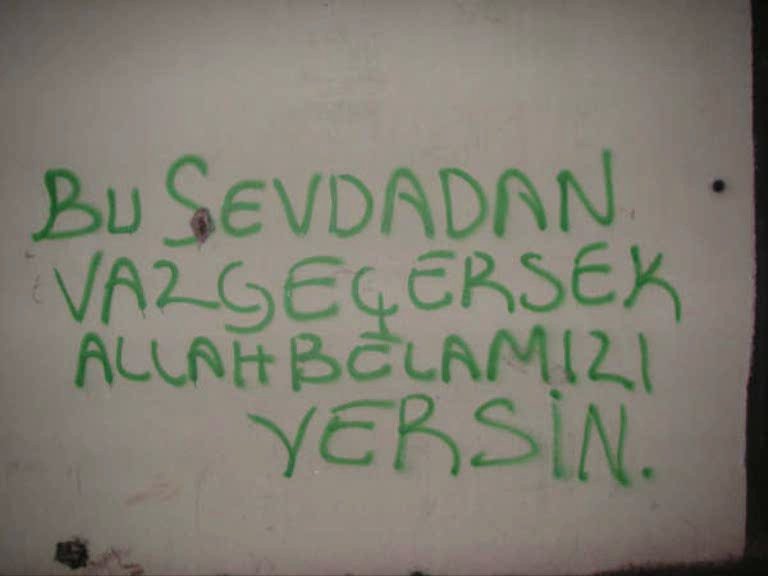 BU SEVDADAN
VAZGEÇERSEK
ALLAH BELAMIZI
VERSİN.